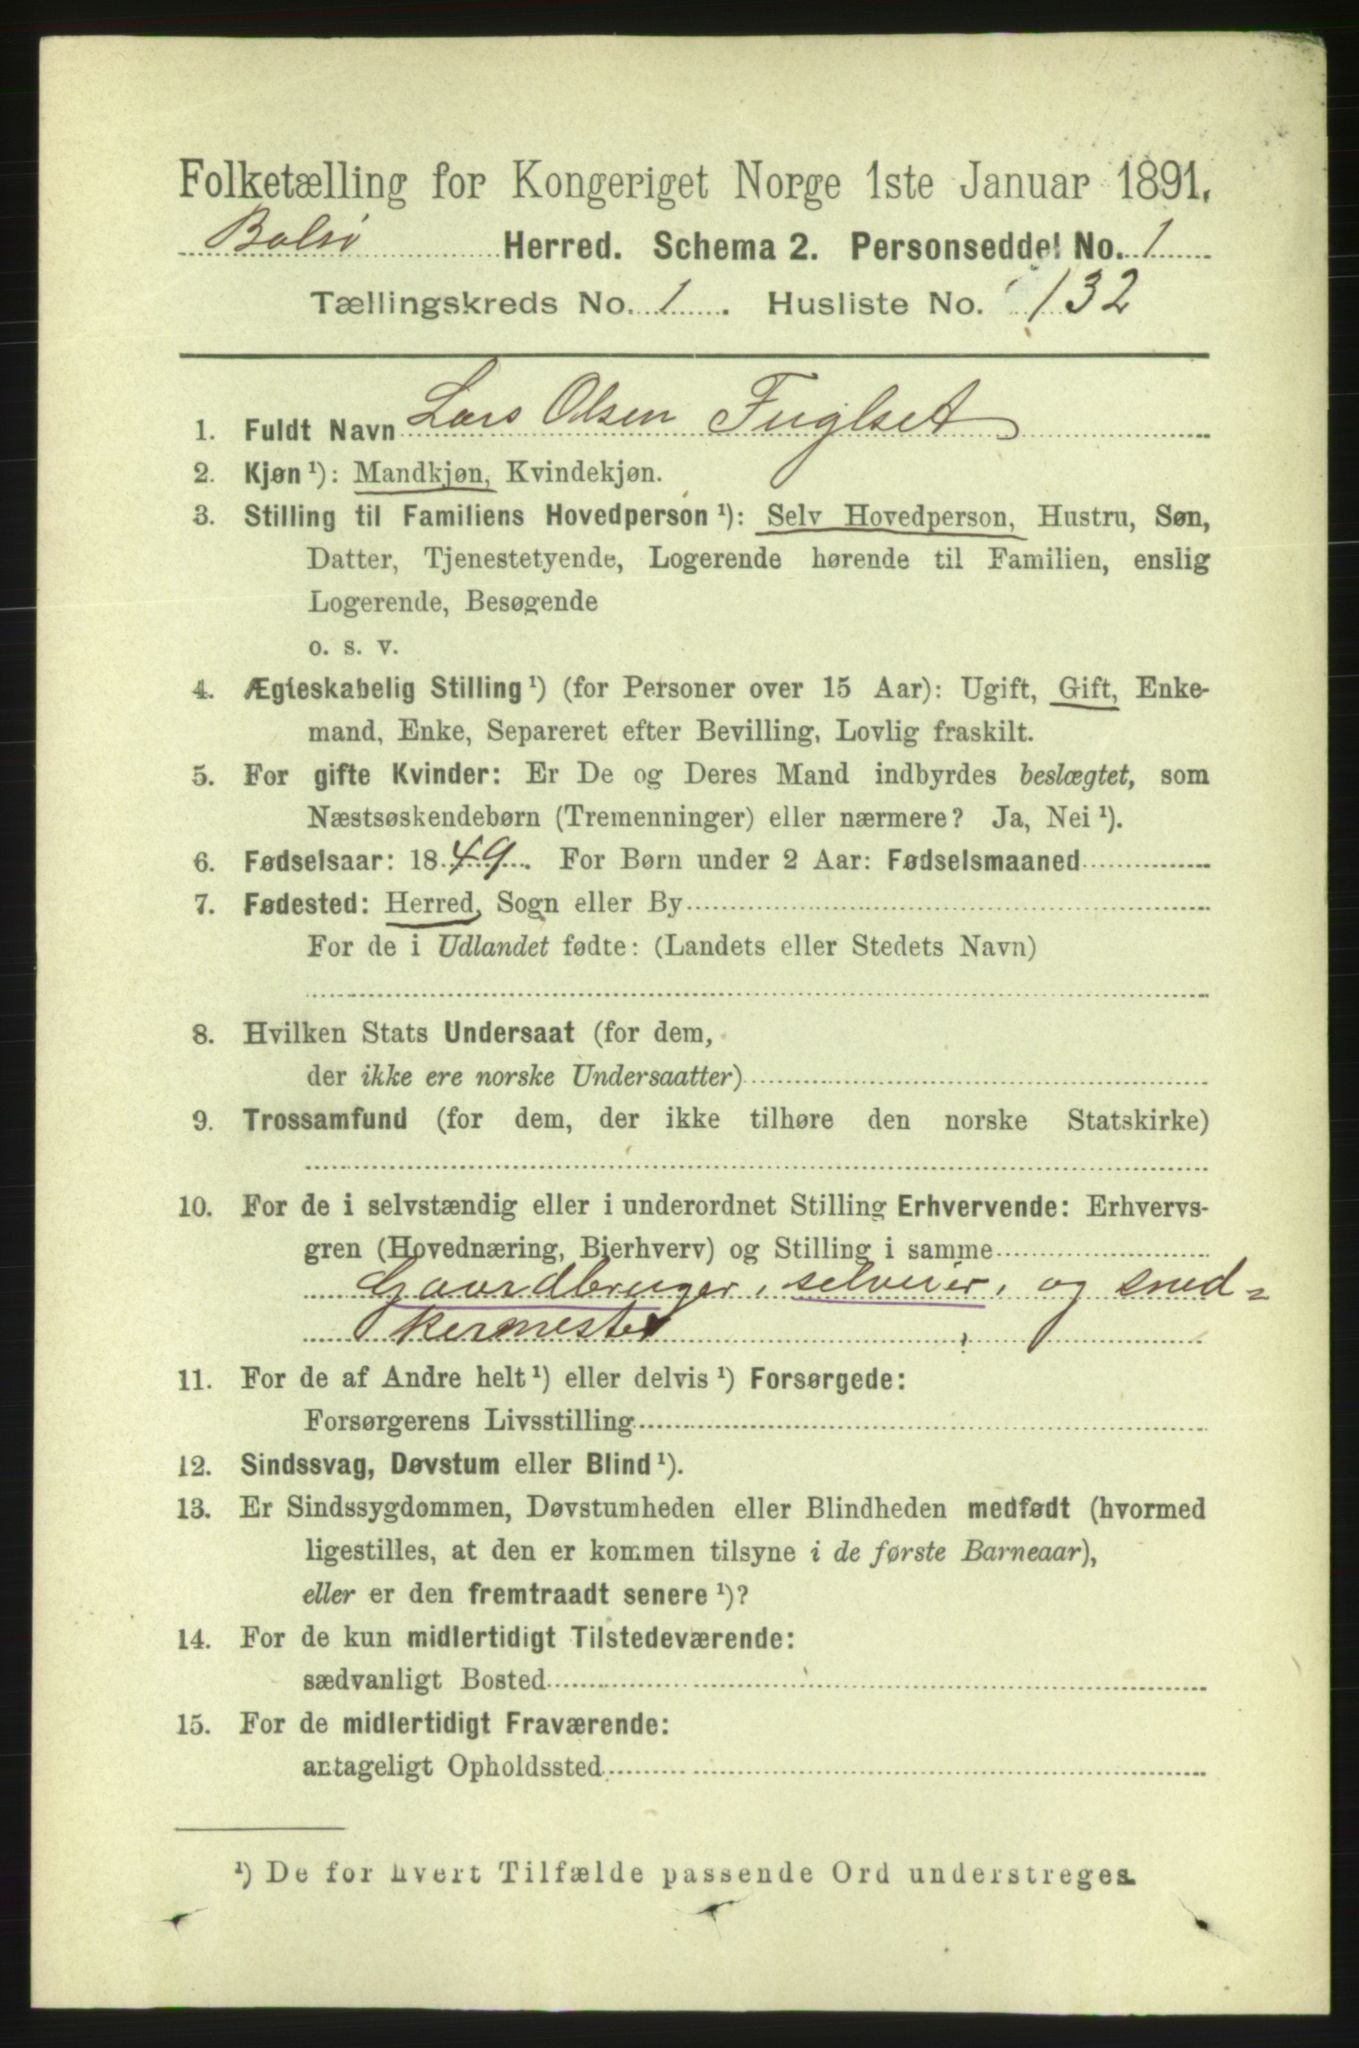 Folketælling for Kongeriget Norge 1ste Januar 1891.
Bolsø Herred. Schema 2. Personseddel No. 1
Tællingskreds No. 1. Husliste No. 132
1. Fuldt Navn Lars Olsen Fuglset
2. Kjøn ¹): Mandkjøn, Kvindekjøn.
3. Stilling til Familiens Hovedperson ¹): Selv Hovedperson, Hustru, Søn,
Datter, Tjenestetyende, Logerende hørende til Familien, enslig
Logerende, Besøgende
o. s. v.
4. Ægteskabelig Stilling ¹) (for Personer over 15 Aar): Ugift, Gift, Enke-
mand, Enke, Separeret efter Bevilling, Lovlig fraskilt.
5. For gifte Kvinder: Er De og Deres Mand indbyrdes beslægtet, som
Næstsøskendebørn (Tremenninger) eller nærmere? Ja, Nei ¹).
6. Fødselsaar: 1849. For Børn under 2 Aar: Fødselsmaaned
7. Fødested: Herred, Sogn eller By
For de i Udlandet fødte: (Landets eller Stedets Navn)
8. Hvilken Stats Undersaat (for dem,
der ikke ere norske Undersaatter)
9. Trossamfund (for dem, der ikke tilhøre den norske Statskirke)
10. For de i selvstændig eller i underordnet Stilling Erhvervende: Erhvervs-
gren (Hovednæring, Bierhverv) og Stilling i samme
Gaardbruger, selveier, og sned=
kermester
11. For de af Andre helt ¹) eller delvis ¹) Forsørgede:
Forsørgerens Livsstilling
12. Sindssvag, Døvstum eller Blind ¹).
13. Er Sindssygdommen, Døvstumheden eller Blindheden medfødt (hvormed
ligestilles, at den er kommen tilsyne i de første Barneaar),
eller er den fremtraadt senere ¹)?
14. For de kun midlertidigt Tilstedeværende:
sædvanligt Bosted
15. For de midlertidigt Fraværende:
antageligt Opholdssted
¹) De for hvert Tilfælde passende Ord understreges.